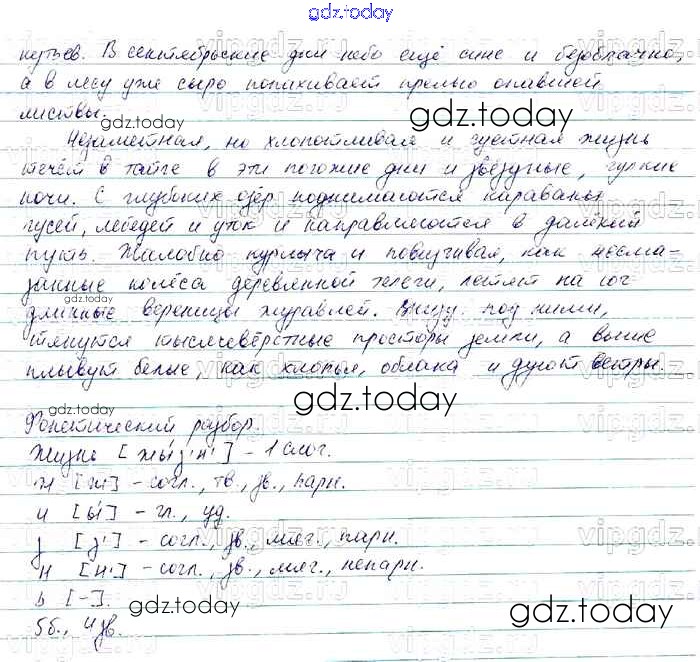 gdz.today
кутьев. В сентябрьские дни небо ещё сине и безоблачно,
а в лесу уже сыро попахивает прелью опавшей
листвы.
gdz.today
gdz.today
Незаметная, но хлопотливая и суетная жизнь
течёт в тайге в эти погожие дни и звёздные, гулкие
ночи. С глубоких озёр поднимаются караваны
гусей, лебедей и уток и направляются в далёкий
путь. Жалобно курлыча и повизгивая, как несма-
занные колёса деревенской телеги, летят на юг
gdz.today
длинные вереницы журавлей. Внизу под ними,
тянутся тысячевёрстные просторы земли, а выше
плывут белые, как хлопья, облака и дуют ветры.
gdz.today
Фонетический разбор.
Жизнь [жы́з'н'] - 1 слог.
ж [ж] - согл., тв., зв., парн.
и [ы́] - гл., уд.
з [з'] - согл., зв., мягк., парн.
н [н'] - согл., зв., мягк., непарн.
ь [-].
gdz.today
gdz.today
5б., 4зв.
vipgdz.ru